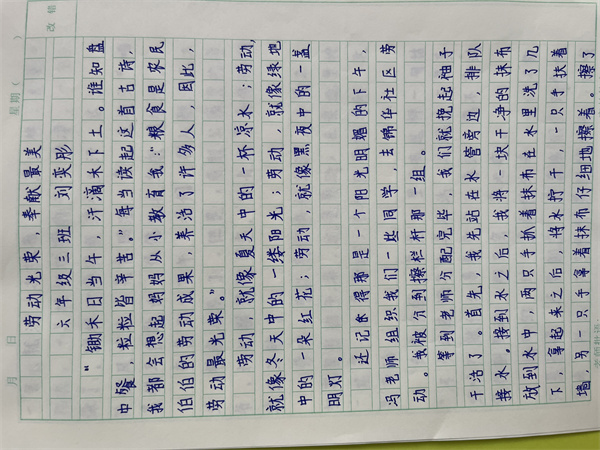 改错
星期( )
月 日
劳动光荣,奉献最美
六年级三班 刘奕彤
“锄禾日当午,汗滴禾下土。谁知盘
中餐,粒粒皆辛苦。”每当读起这首古诗,
我都会想起妈妈从小教育我:“粮食是农民
伯伯的劳动成果,养活了许多人,因此,
劳动最光荣。”
劳动,就像夏天中的一杯凉水;劳动,
就像冬天中的一缕阳光;劳动,就像绿地
中的一朵红花;劳动,就像黑夜中的一盏
明灯。
还记得那是一个阳光明媚的下午,
冯老师组织我们一些同学,去锦华社区劳
动。我被分到擦栏杆那一组。
等到老师分配完毕,我们就挽起袖子
干活了。首先,我先站在水管旁边,排队
接水。接到水之后,我将一块干净的抹布
放到水中,两只手抓着抹布在水里洗了几
下,拿起来之后,将水拧干,一只手扶着
墙,另一只手拿着抹布仔细地擦着。擦了
老师批语: